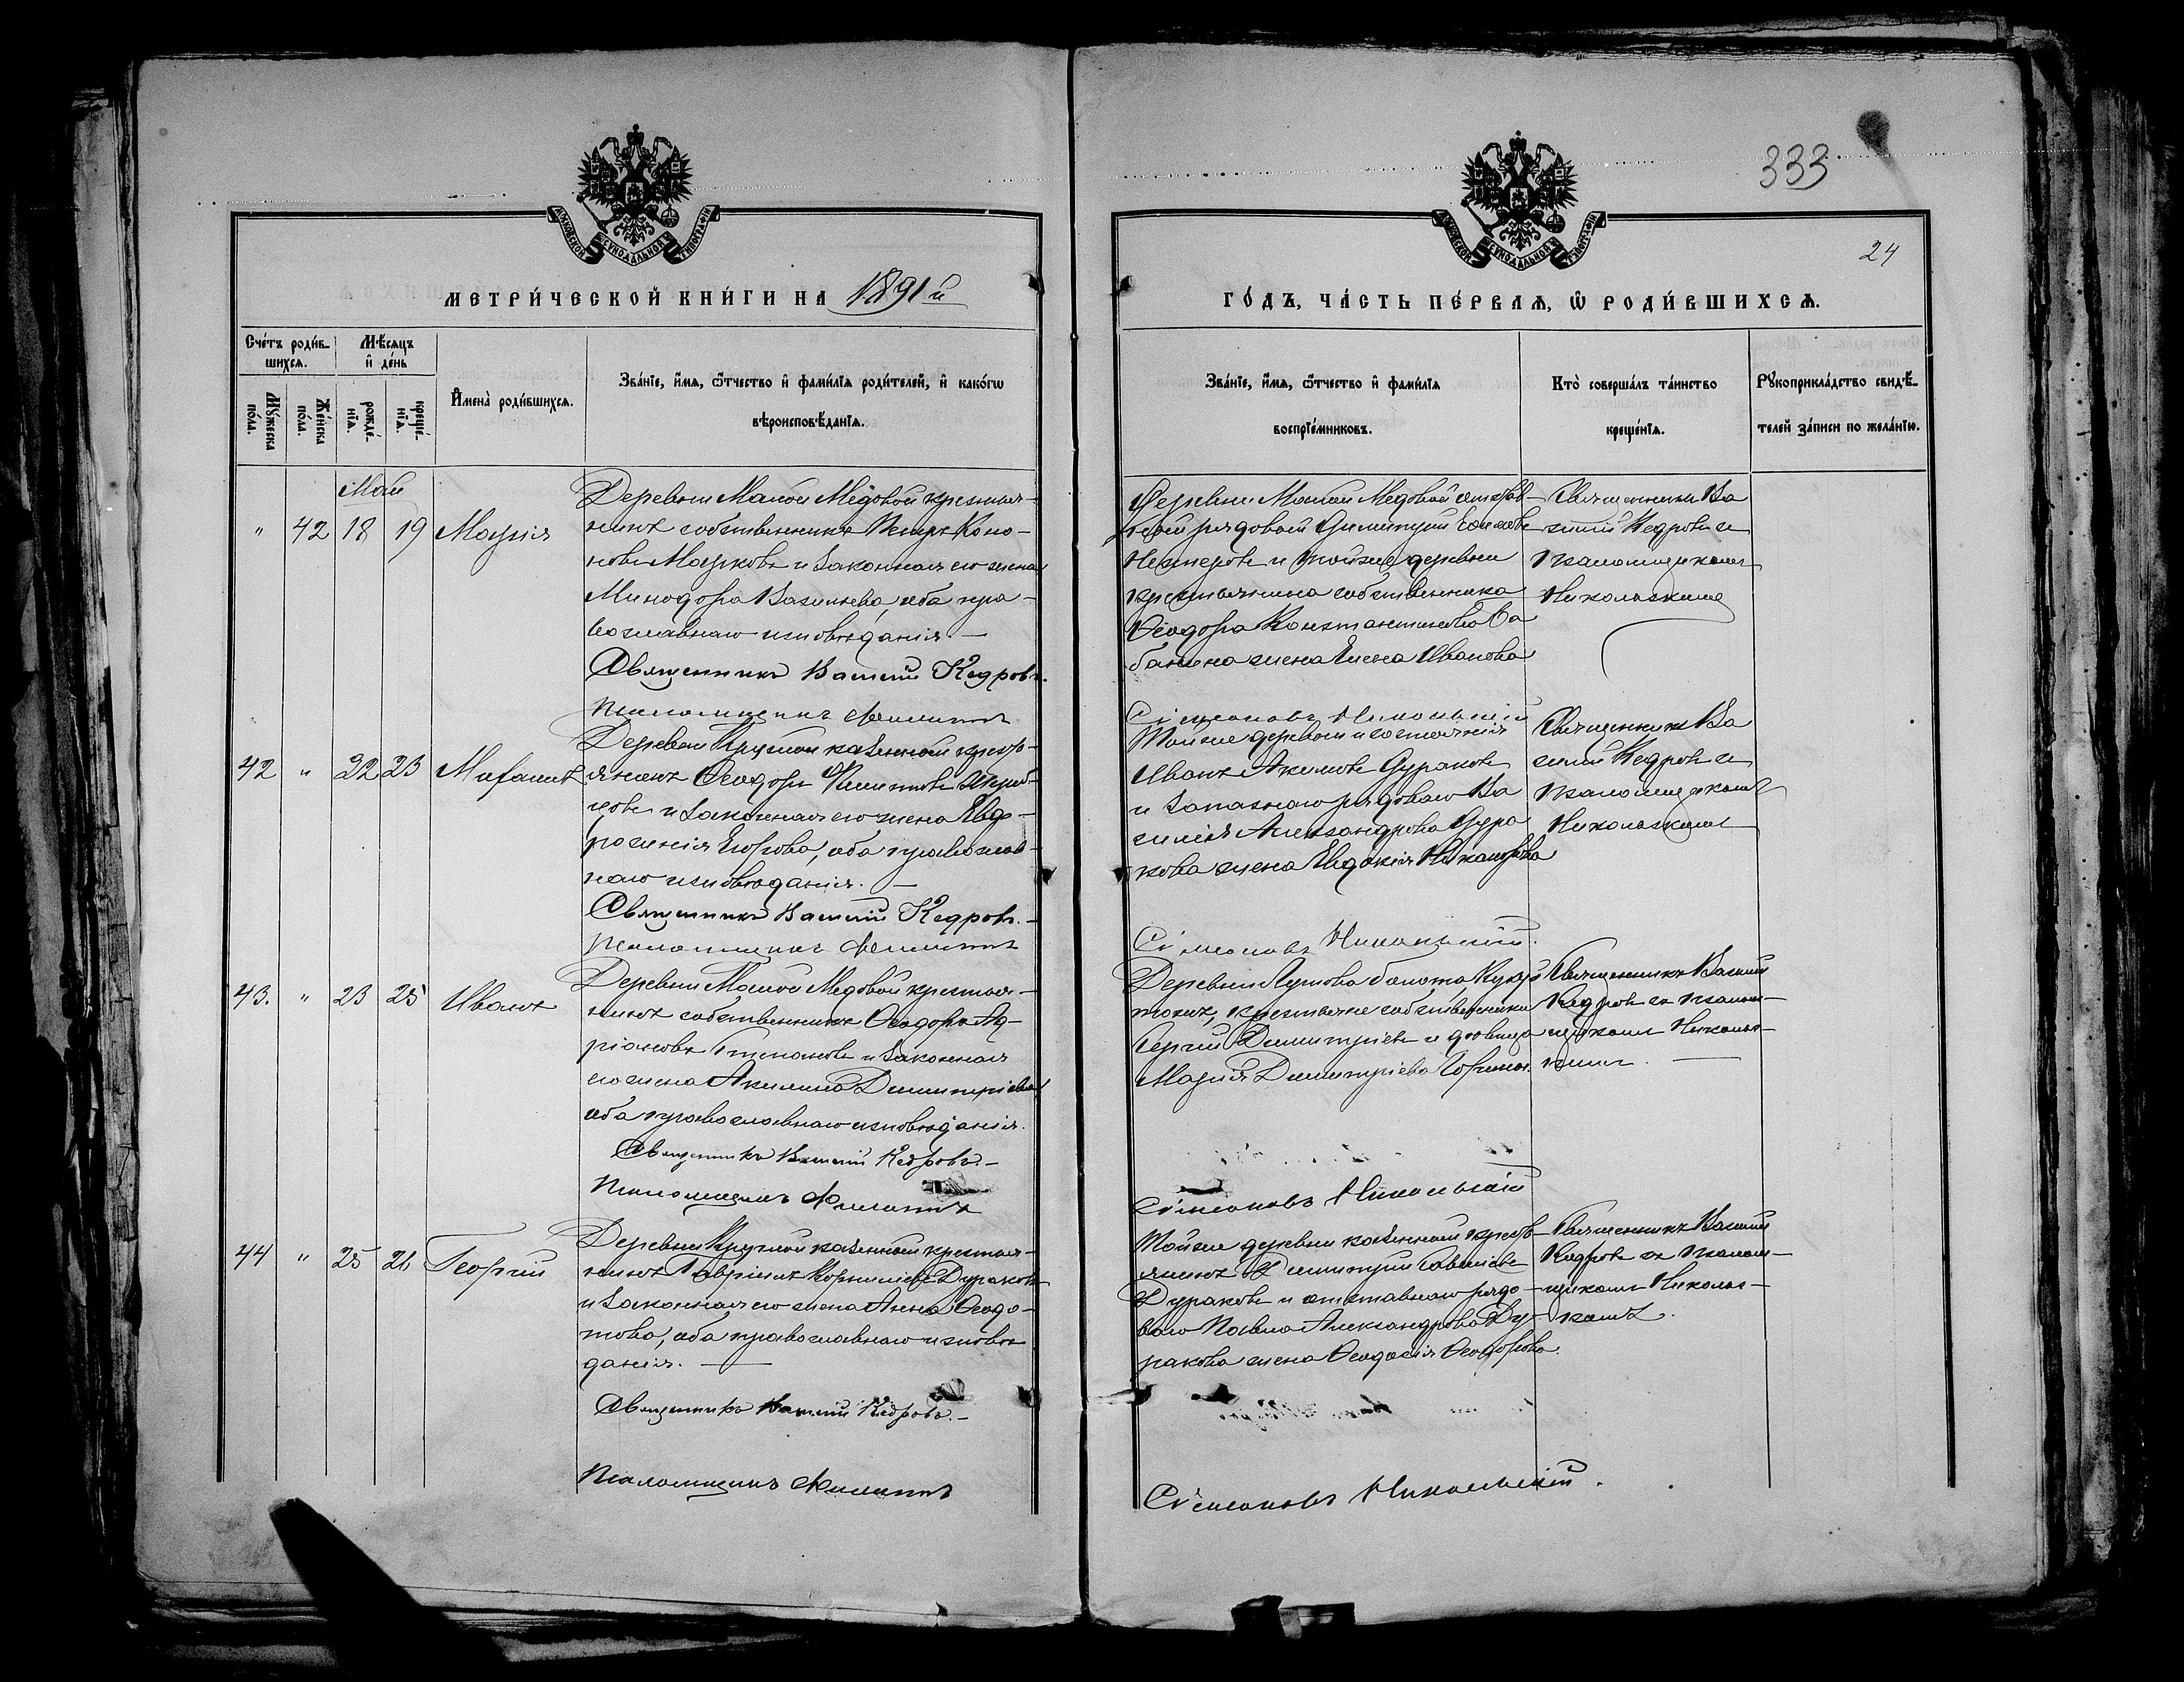 333
24
МОСКОВСКОЙ СУНОДАЛЬНОЙ ТИПОГРАФІИ
МОСКОВСКОЙ СУНОДАЛЬНОЙ ТИПОГРАФІИ
МЕТРИ́ЧЕСКОЙ КНИ́ГИ НА 1891й
ГО́ДЪ, ЧА́СТЬ ПЕ́РВАѦ, Ѡ РОДИ́ВШИХСѦ.
Сче́тъ роди́в-
шихсѧ.
Мꙋ́жеска
по́ла.
Же́нска
по́ла.
Мѣ́сѧцъ
и҆ де́нь
рожде́-
нїѧ.
креще́-
нїѧ.
И҆мена̀ роди́вшихсѧ.
Зва́нїе, и҆́мѧ, ѻ҆́тчество и҆ фами́лїѧ роди́телей, и҆ како́гѡ
вѣроисповѣ́данїѧ.
Зва́нїе, и҆́мѧ, ѻ҆́тчество и҆ фами́лїѧ
воспрїе́мниковъ.
Кто̀ соверша́лъ та́инство
креще́нїѧ.
Рꙋкоприкла́дство свидѣ́-
телей за́писи по жела́нїю.
Май
" 42 18 19 Марія
Деревни Малой Медовой крестья-
нинъ собственникъ Петръ Коно-
новъ Марковъ и законная его жена
Минодора Васильева, оба пра-
вославнаго исповѣданія. —
Священникъ Василій Кедровъ.
Псаломщикъ Филиппъ
Деревни Малой Медовой отстав-
ной рядовой Димитрій
Нестеровъ и той же деревни
крестьянина собственника
Ѳеодора Константинова Ба
банина жена Елена Иванова
Симеоновъ Никольскій
Священникъ Ва
силій Кедровъ съ
псаломщикомъ
Никольскимъ
42 " 22 23 Михаилъ
Деревни Круглой казенной кресть-
янинъ Ѳеодоръ Филипповъ
и законная его жена Евф-
росинія Егорова, оба православ-
наго исповѣданія. —
Священникъ Василій Кедровъ. —
Псаломщикъ Филиппъ
Той же деревни и состоянія
Иванъ Акимовъ Дураковъ
и запаснаго рядоваго Ва
силія Александрова Дура
кова жена Евдокія Никанорова
Симеоновъ Никольскій.
Священникъ Ва
силій Кедровъ съ
псаломщикомъ
Никольскимъ
43. " 23 25 Иванъ
Деревни Малой Медовой крестья-
нинъ собственникъ Ѳеодоръ Ад-
ріановъ Степановъ и законная
его жена Акилина Димитріева
оба православнаго исповѣданія.
Священникъ Василій Кедровъ. —
Псаломщикъ Филиппъ
Деревни болота,
тожъ, крестьяне собственники
Сергій Димитріевъ и дѣвица
Марія Димитріева
Симеоновъ Никольскій
Священникъ Василій
Кедровъ съ псалом-
щикомъ Николь-
скимъ. —
44 " 25 26 Георгій
Деревни Круглой казенной крестья-
нинъ Гавріилъ Корниліевъ Дураковъ
и законная его жена Анна Ѳеодо-
това, оба православнаго исповѣ
данія. —
Священникъ Василій Кедровъ. —
Псаломщикъ Филиппъ
Той же деревни казенной кресть-
янинъ Димитрій Савеліевъ
Дураковъ и отставнаго рядо-
ваго Павла Александрова Ду-
ракова жена Ѳеодосія Ѳеодорова.
Симеоновъ Никольскій.
Священникъ Василій
Кедровъ съ псалом-
щикомъ Николь-
скимъ.